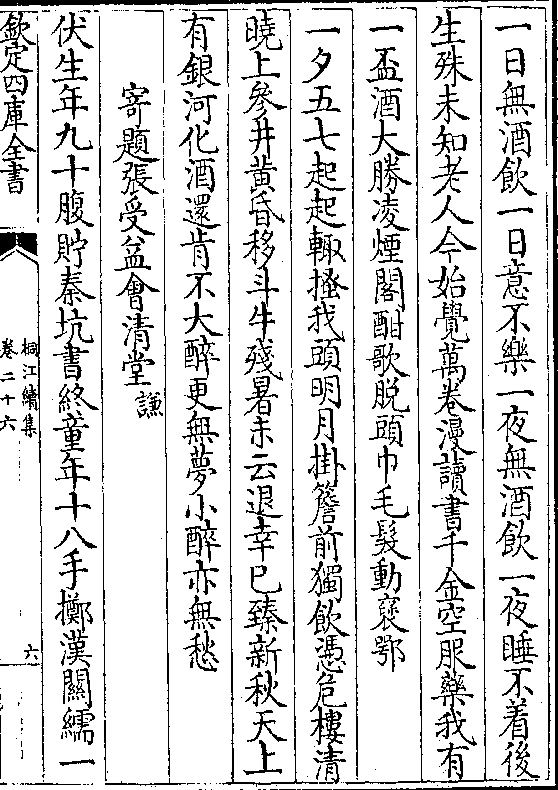 一日無酒飲一日意不樂一夜無酒飲一夜睡不着後
生殊未知老人今始覺萬卷漫讀書千金空服藥我有
一盃酒大勝凌煙閣酣歌脱頭巾毛髮動襃鄂
一夕五七起起輙搔我頭明月掛簷前獨飲憑危樓清
曉上參井黄昏移斗牛殘暑未云退幸已臻新秋天上
有銀河化酒還肯不大醉更無夢小醉亦無愁
寄題張受益會清堂謙
伏生年九十腹貯秦坑書終童年十八手擲漢關繻一
欽定四庫全書
桐江續集
卷二十六
六